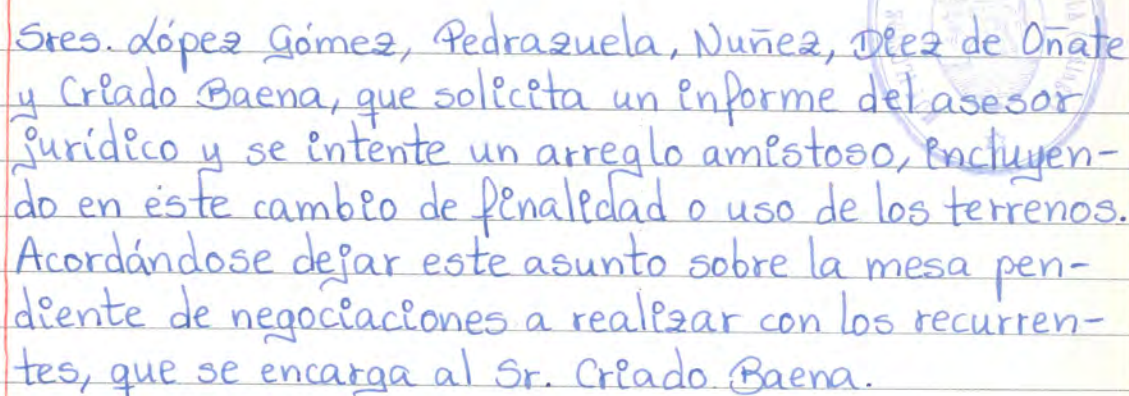 Sres. López Gómez, Pedrazuela, Nuñez, Díez de Oñate
y Criado Baena, que solicita un informe del asesor
jurídico y se intente un arreglo amistoso, incluyen-
do en éste cambio de finalidad o uso de los terrenos.
Acordándose dejar este asunto sobre la mesa pen-
diente de negociaciones a realizar con los recurren-
tes, que se encarga al Sr. Criado Baena.